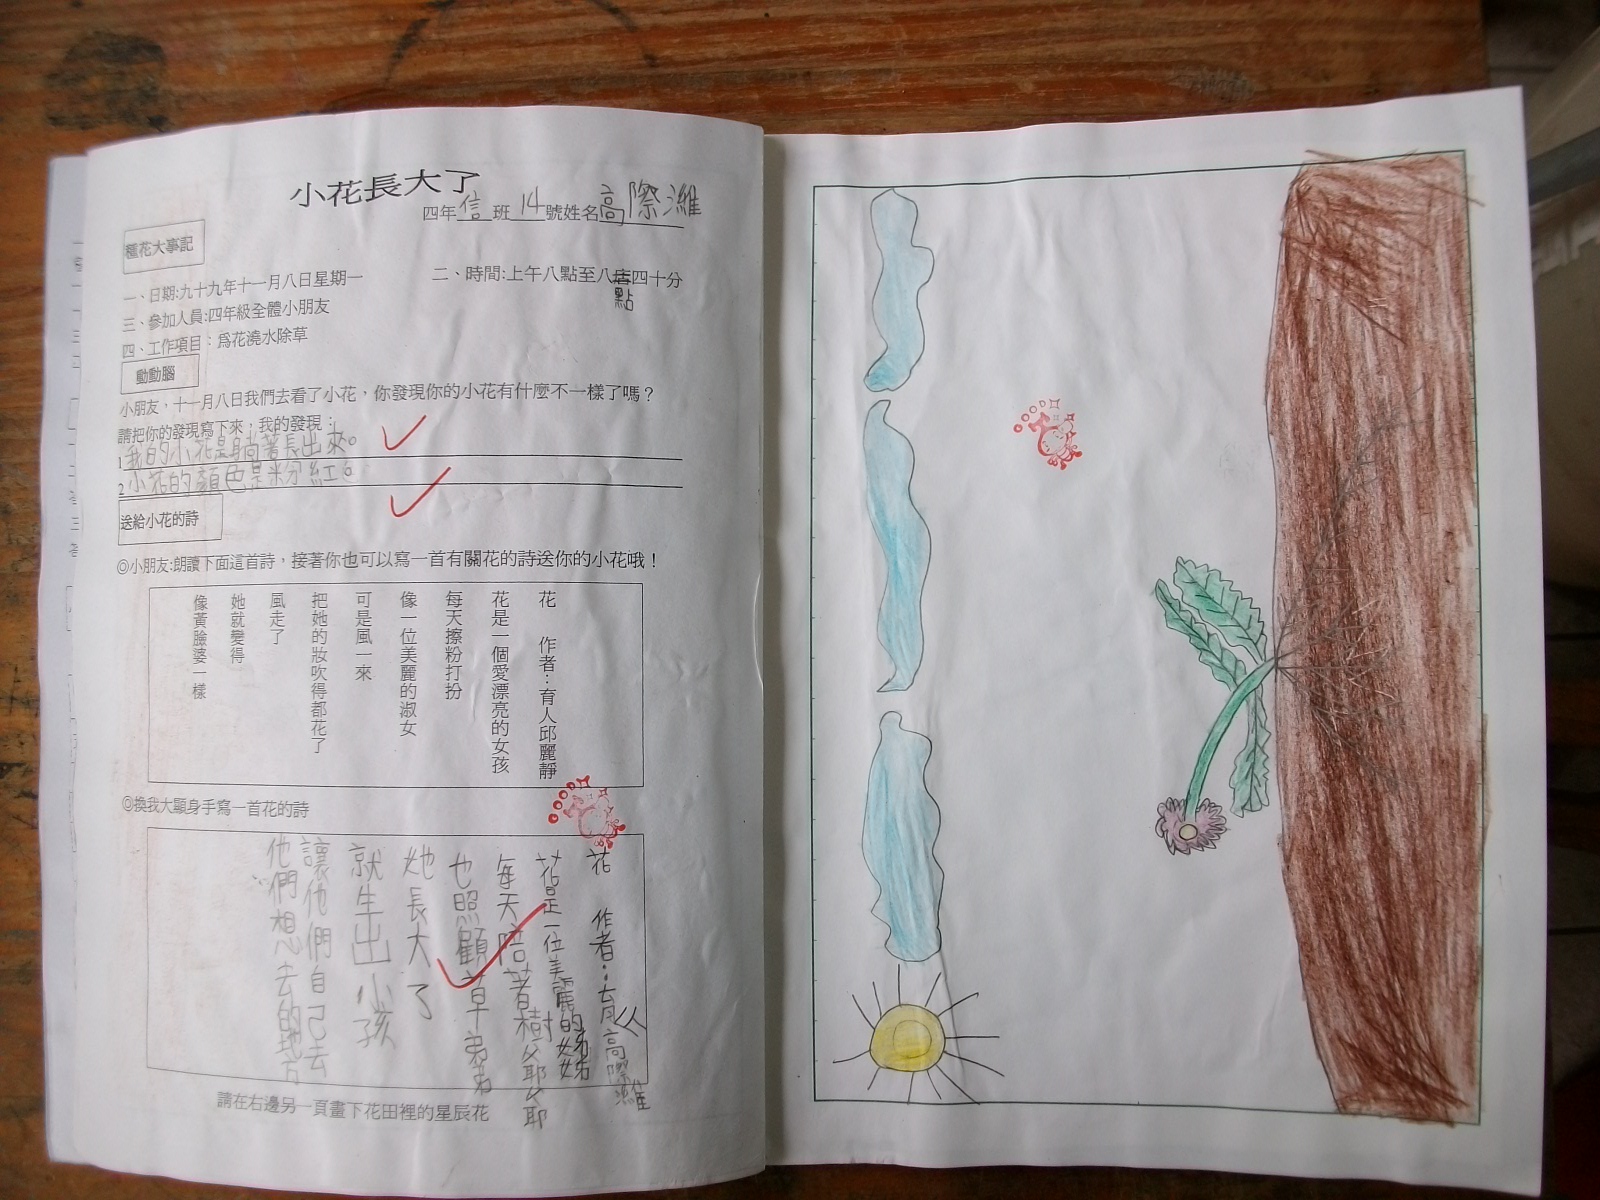 小花長大了
四年信班14號姓名高際濰
種花大事記
一、日期:九十九年十一月八日星期一 二、時間:上午八點至八店四十分
點
三、參加人員:四年級全體小朋友
四、工作項目：為花澆水除草
動動腦
小朋友，十一月八日我們去看了小花，你發現你的小花有什麼不一樣了嗎？
請把你的發現寫下來，我的發現：
1我的小花是躺著長出來。
2小花的顏色是粉紅色
送給小花的詩
◎小朋友:朗讀下面這首詩，接著你也可以寫一首有關花的詩送你的小花哦！
花 作者：育人邱麗靜
花是一個愛漂亮的女孩
每天擦粉打扮
像一位美麗的淑女
可是風一來
把她的妝吹得都花了
風走了
她就變得
像黃臉婆一樣
◎換我大顯身手寫一首花的詩
GOOD
花 作者：育人高際濰
花是一位美麗的姊姊
每天陪著樹爺爺
也照顧草弟弟
她長大了
就生出小孩子
讓他們自己去
他們想去的地方
請在右邊另一頁畫下花田裡的星辰花
GOOD